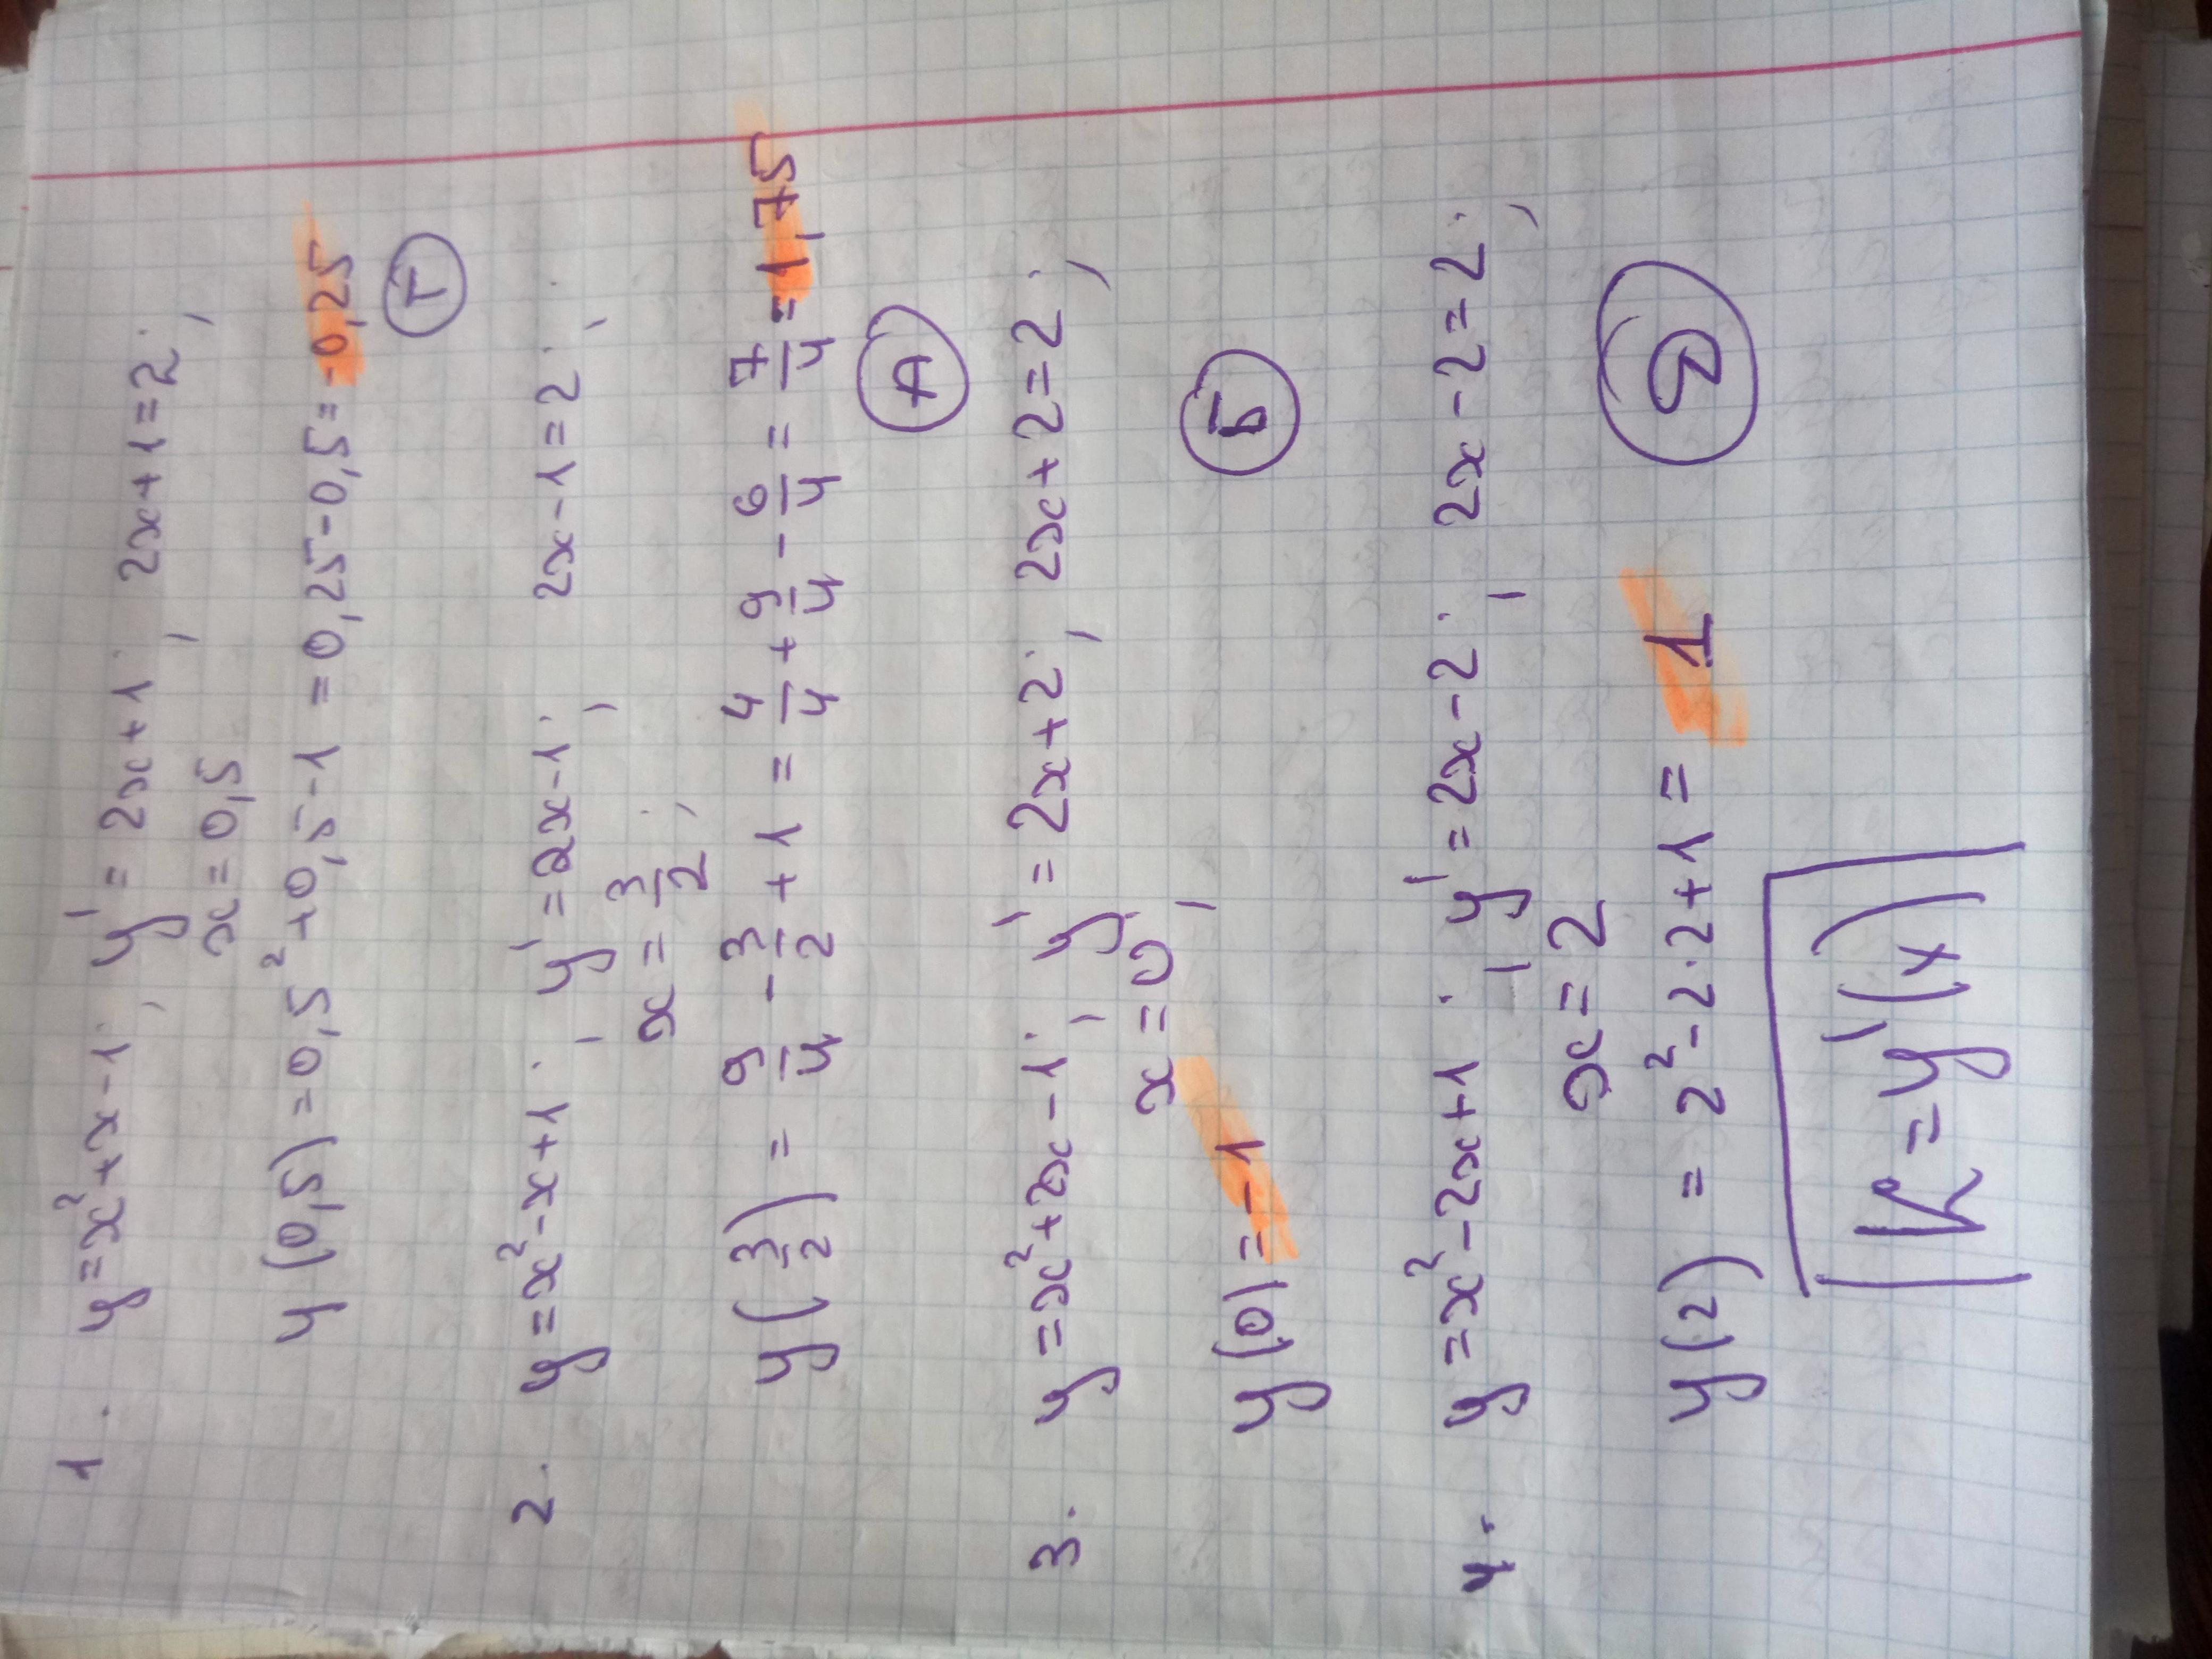 1. y=x²+x-1; y'=2x+1; 2x+1=2;
x=0,5
y(0,5)=0,5²+0,5-1=0,25-0,5=-0,25
Г
2. y=x²-x+1; y'=2x-1; 2x-1=2;
x=3/2;
y(3/2)=9/4-3/2+1=4/4+9/4-6/4=7/4=1,75
А
3. y=x²+2x-1; y'=2x+2; 2x+2=2;
x=0;
y(0)=-1
Б
4. y=x²-2x+1; y'=2x-2; 2x-2=2;
x=2
y(2)=2²-2·2+1=1
k=y'(x)